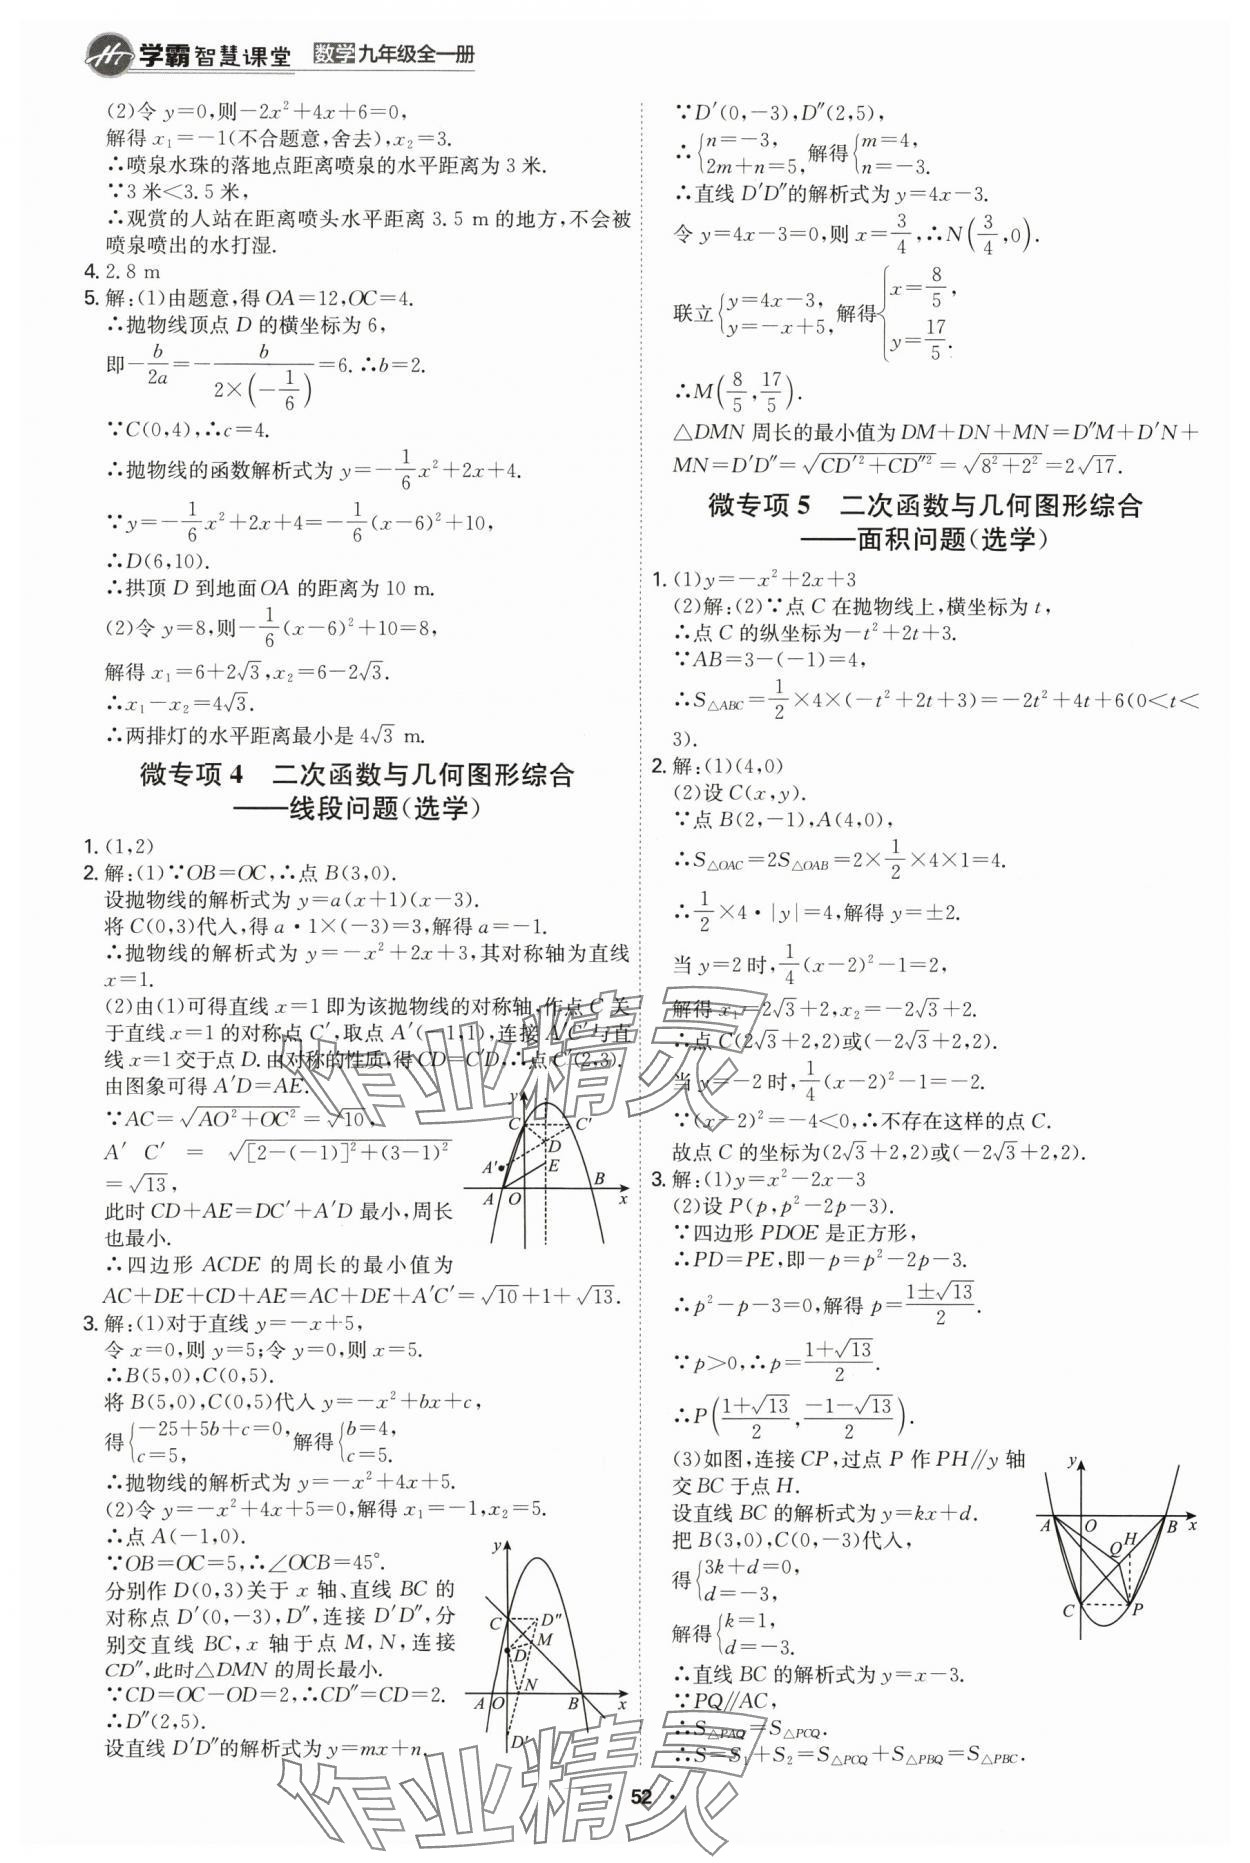 学霸智慧课堂 数学九年级全一册
(2)令 y=0,则-2x²+4x+6=0,
解得 x₁=-1(不合题意,舍去),x₂=3.
∴喷泉水珠的落地点距离喷泉的水平距离为 3 米.
∵3 米<3.5 米,
∴观赏的人站在距离喷头水平距离 3.5 m 的地方,不会被
喷泉喷出的水打湿.
4. 2.8 m
5. 解:(1)由题意,得 OA=12,OC=4.
∴抛物线顶点 D 的横坐标为 6,
即-b/2a=-b/(2×(-1/6))=6. ∴b=2.
∵C(0,4),∴c=4.
∴抛物线的函数解析式为 y=-1/6x²+2x+4.
∵y=-1/6x²+2x+4=-1/6(x-6)²+10,
∴D(6,10).
∴拱顶 D 到地面 OA 的距离为 10 m.
(2)令 y=8,则-1/6(x-6)²+10=8,
解得 x₁=6+2√3,x₂=6-2√3.
∴x₁-x₂=4√3.
∴两排灯的水平距离最小是 4√3 m.
微专项 4 二次函数与几何图形综合
——线段问题(选学)
1. (1,2)
2. 解:(1)∵OB=OC,∴点 B(3,0).
设抛物线的解析式为 y=a(x+1)(x-3).
将 C(0,3)代入,得 a·1×(-3)=3,解得 a=-1.
∴抛物线的解析式为 y=-x²+2x+3,其对称轴为直线
x=1.
(2)由(1)可得直线 x=1 即为该抛物线的对称轴,作点 C 关
于直线 x=1 的对称点 C′,取点 A′(-1,1),连接 A′C′与直
线 x=1 交于点 D.由对称的性质,得 CD=C′D,∴点 C′(2,3).
由图象可得 A′D=AE.
∵AC=√(AO²+OC²)=√10,
A′C′=√([2-(-1)]²+(3-1)²)
=√13,
此时 CD+AE=DC′+A′D 最小,周长
也最小.
∴四边形 ACDE 的周长的最小值为
AC+DE+CD+AE=AC+DE+A′C′=√10+1+√13.
y
C C′
D
A′ E
A O B x
3. 解:(1)对于直线 y=-x+5,
令 x=0,则 y=5;令 y=0,则 x=5.
∴B(5,0),C(0,5).
将 B(5,0),C(0,5)代入 y=-x²+bx+c,
得{-25+5b+c=0, c=5, 解得{b=4, c=5.
∴抛物线的解析式为 y=-x²+4x+5.
(2)令 y=-x²+4x+5=0,解得 x₁=-1,x₂=5.
∴点 A(-1,0).
∵OB=OC=5,∴∠OCB=45°.
分别作 D(0,3)关于 x 轴、直线 BC 的
对称点 D′(0,-3),D″,连接 D′D″,分
别交直线 BC,x 轴于点 M,N,连接
CD″,此时△DMN 的周长最小.
∵CD=OC-OD=2,∴CD″=CD=2.
∴D″(2,5).
设直线 D′D″的解析式为 y=mx+n.
y
C D″
M
D
N
A O B x
D′
∵D′(0,-3),D″(2,5),
∴{n=-3, 2m+n=5, 解得{m=4, n=-3.
∴直线 D′D″的解析式为 y=4x-3.
令 y=4x-3=0,则 x=3/4,∴N(3/4,0).
联立{y=4x-3, y=-x+5, 解得{x=8/5, y=17/5.
∴M(8/5,17/5).
△DMN 周长的最小值为 DM+DN+MN=D″M+D′N+
MN=D′D″=√(CD′²+CD″²)=√(8²+2²)=2√17.
微专项 5 二次函数与几何图形综合
——面积问题(选学)
1. (1)y=-x²+2x+3
(2)解:(2)∵点 C 在抛物线上,横坐标为 t,
∴点 C 的纵坐标为-t²+2t+3.
∵AB=3-(-1)=4,
∴S△ABC=1/2×4×(-t²+2t+3)=-2t²+4t+6(0<t<
3).
2. 解:(1)(4,0)
(2)设 C(x,y).
∵点 B(2,-1),A(4,0),
∴S△OAC=2S△OAB=2×1/2×4×1=4.
∴1/2×4·|y|=4,解得 y=±2.
当 y=2 时,1/4(x-2)²-1=2,
解得 x₁=2√3+2,x₂=-2√3+2.
∴点 C(2√3+2,2)或(-2√3+2,2).
当 y=-2 时,1/4(x-2)²-1=-2.
∵(x-2)²=-4<0,∴不存在这样的点 C.
故点 C 的坐标为(2√3+2,2)或(-2√3+2,2).
3. 解:(1)y=x²-2x-3
(2)设 P(p,p²-2p-3).
∵四边形 PDOE 是正方形,
∴PD=PE,即-p=p²-2p-3.
∴p²-p-3=0,解得 p=(1±√13)/2.
∵p>0,∴p=(1+√13)/2.
∴P((1+√13)/2,(-1-√13)/2).
(3)如图,连接 CP,过点 P 作 PH∥y 轴
交 BC 于点 H.
设直线 BC 的解析式为 y=kx+d.
把 B(3,0),C(0,-3)代入,
得{3k+d=0, d=-3,
解得{k=1, d=-3.
∴直线 BC 的解析式为 y=x-3.
∵PQ∥AC,
∴S△PAQ=S△PCQ.
∴S=S₁+S₂=S△PCQ+S△PBQ=S△PBC.
y
A O B x
H
Q
C P
作业精灵
作业精灵
· 52 ·